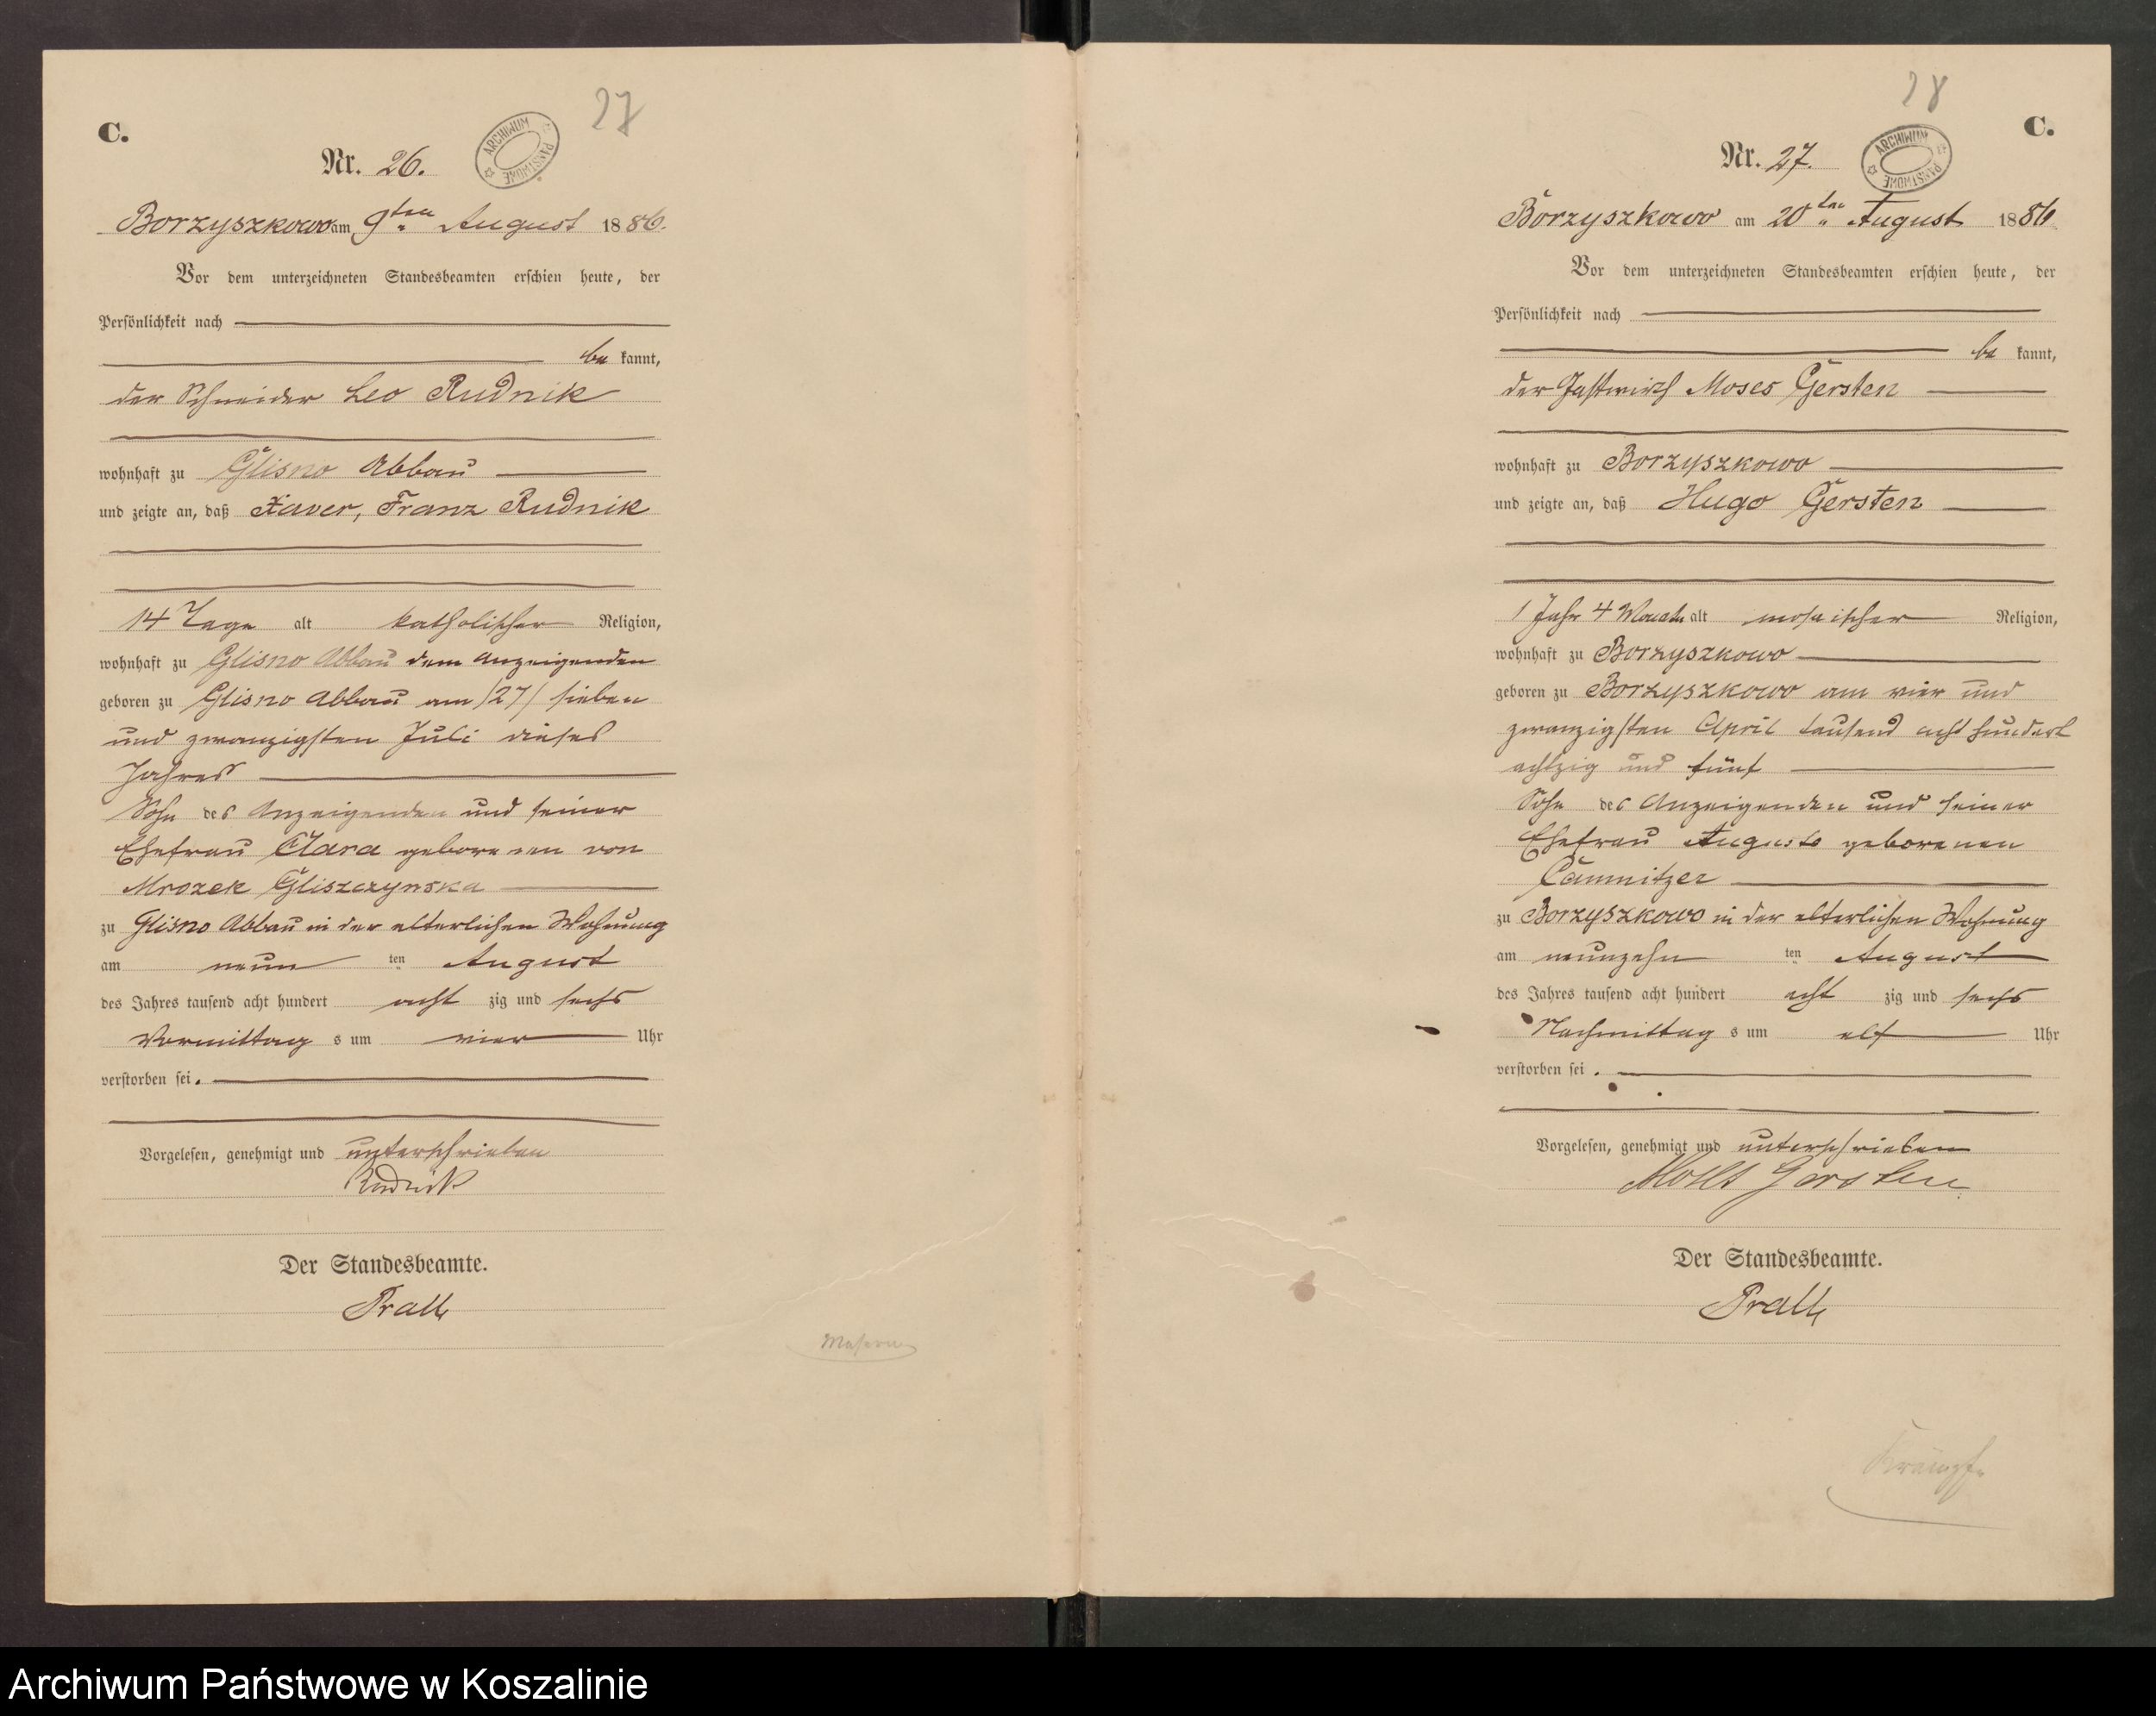 27
C.
Nr. 26.
ARCHIWUM PAŃSTWOWE
Borzyszkowo am 9ten August 1886.
Vor dem unterzeichneten Standesbeamten erschien heute, der
Persönlichkeit nach
be kannt,
der Schneider Leo Rudnik
wohnhaft zu Glisno Abbau
und zeigte an, daß Xaver, Franz Rudnik
14 Tage alt katholischer Religion,
wohnhaft zu Glisno Abbau dem Anzeigenden
geboren zu Glisno Abbau am /27/ sieben
und zwanzigsten Juli dieses
Jahres
Sohn des Anzeigenden und seiner
Ehefrau Clara geborenen von
Mrozek Gliszczynska
zu Glisno Abbau in der elterlichen Wohnung
am neun ten August
des Jahres tausend acht hundert acht zig und sechs
Vormittag s um vier Uhr
verstorben sei.
Vorgelesen, genehmigt und unterschrieben
Rudnik
Der Standesbeamte.
Masern
28
C.
Nr. 27.
ARCHIWUM PAŃSTWOWE
Borzyszkowo am 20ten August 1886
Vor dem unterzeichneten Standesbeamten erschien heute, der
Persönlichkeit nach
be kannt,
der Gastwirth Moses Gersten
wohnhaft zu Borzyszkowo
und zeigte an, daß Hugo Gersten
1 Jahr 4 Monate alt mosaischer Religion,
wohnhaft zu Borzyszkowo
geboren zu Borzyszkowo am vier und
zwanzigsten April tausend acht hundert
achtzig und fünf
Sohn des Anzeigenden und seiner
Ehefrau Auguste geborenen
Camnitzer
zu Borzyszkowo in der elterlichen Wohnung
am neunzehn ten August
des Jahres tausend acht hundert acht zig und sechs
Nachmittag s um elf Uhr
verstorben sei.
Vorgelesen, genehmigt und unterschrieben
Moses Gersten
Der Standesbeamte.
Krämpfe
Archiwum Państwowe w Koszalinie